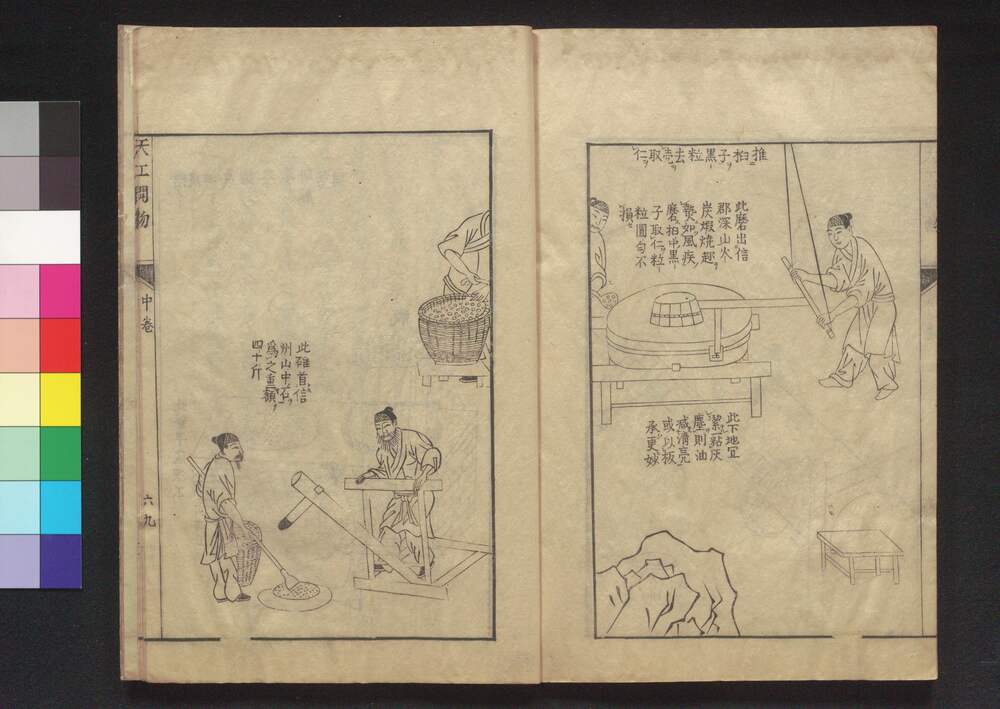 推桕子黑粒去壳取仁
此磨出信
郡深山火
炭煆燒起
熨如風疾
磨桕中黑
子取仁粒
粒圓勻不
損
此下地宜
潔點灰
塵則油
減清亮
或以板
承更妙
此碓首信
州山中石
爲之重類
四十斤
天工開物
中卷
六九